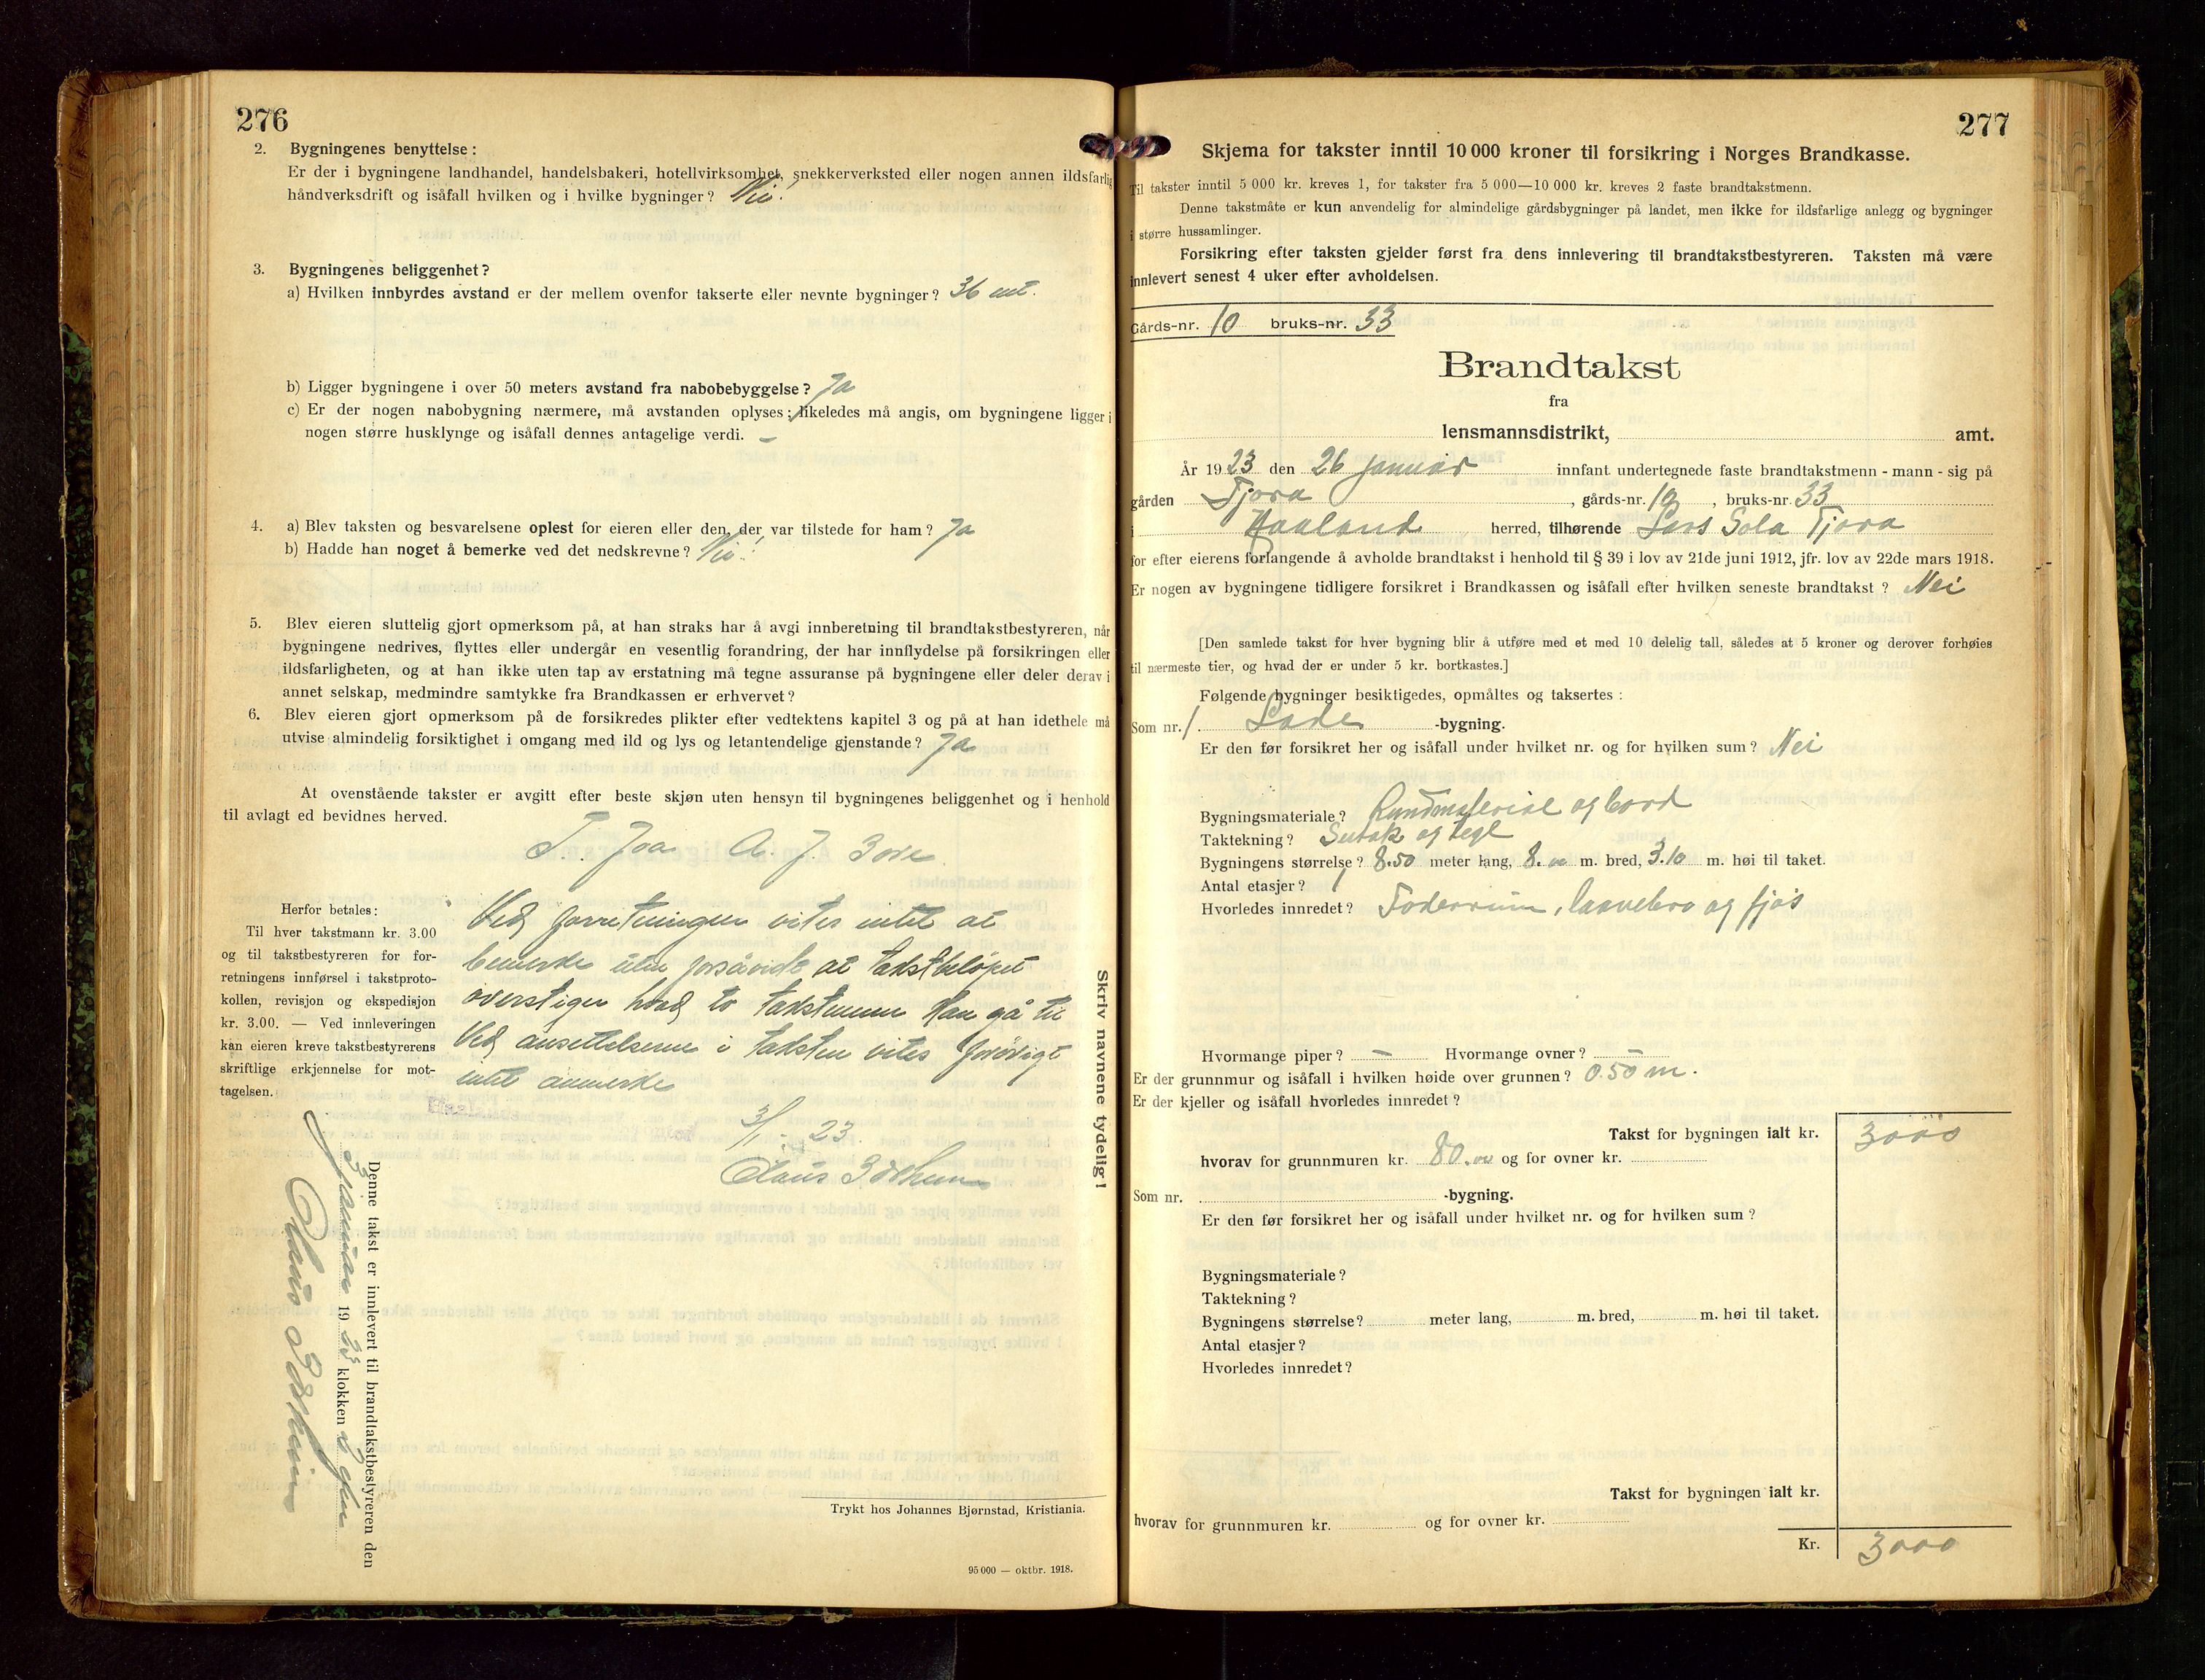 276
2. Bygningenes benyttelse :
Er der i bygningene landhandel, handelsbakeri, hotellvirksomhet, snekkerverksted eller nogen annen ildsfarlig
håndverksdrift og isåfall hvilken og i hvilke bygninger ? Nei!
3. Bygningenes beliggenhet ?
a) Hvilken innbyrdes avstand er der mellem ovenfor takserte eller nevnte bygninger ? 36 mt.
b) Ligger bygningene i over 50 meters avstand fra nabobebyggelse ? Ja
c) Er der nogen nabobygning nærmere, må avstanden oplyses ; likeledes må angis, om bygningene ligger i
nogen større husklynge og isåfall dennes antagelige verdi. –
4. a) Blev taksten og besvarelsene oplest for eieren eller den, der var tilstede for ham ? Ja
b) Hadde han noget å bemerke ved det nedskrevne ? Nei!
5. Blev eieren sluttelig gjort opmerksom på, at han straks har å avgi innberetning til brandtakstbestyreren, når
bygningene nedrives, flyttes eller undergår en vesentlig forandring, der har innflydelse på forsikringen eller
ildsfarligheten, og at han ikke uten tap av erstatning må tegne assuranse på bygningene eller deler derav i
annet selskap, medmindre samtykke fra Brandkassen er erhvervet ?
6. Blev eieren gjort opmerksom på de forsikredes plikter efter vedtektens kapitel 3 og på at han idethele må
utvise almindelig forsiktighet i omgang med ild og lys og letantendelige gjenstande ? Ja
At ovenstående takster er avgitt efter beste skjøn uten hensyn til bygningenes beliggenhet og i henhold
til avlagt ed bevidnes herved.
T. Joa A. J.
Herfor betales :
Til hver takstmann kr. 3.00
og til takstbestyreren for for-
retningens innførsel i takstproto-
kollen, revisjon og ekspedisjon
kr. 3.00. — Ved innleveringen
kan eieren kreve takstbestyrerens
skriftlige erkjennelse for mot-
tagelsen.
Ved forretningen vites intet at
bemerke uten forsåvidt at takstbeløpet
overstiger hvad to takstmenn kan gå til
Ved ansettelserne i taksten vites forøvrigt
intet anmerke
3/1 - 23.
Olaus
Skriv navnene tydelig !
Denne takst er innlevert til brandtakstbestyreren den
3 Januar 1923 klokken
Olaus
Trykt hos Johannes Bjørnstad, Kristiania.
95 000 — oktbr. 1918.
277
Skjema for takster inntil 10 000 kroner til forsikring i Norges Brandkasse.
Til takster inntil 5 000 kr. kreves 1, for takster fra 5 000—10 000 kr. kreves 2 faste brandtakstmenn.
Denne takstmåte er kun anvendelig for almindelige gårdsbygninger på landet, men ikke for ildsfarlige anlegg og bygninger
i større hussamlinger.
Forsikring efter taksten gjelder først fra dens innlevering til brandtakstbestyreren. Taksten må være
innlevert senest 4 uker efter avholdelsen.
Gårds-nr. 10 bruks-nr. 33
Brandtakst
fra
lensmannsdistrikt, amt.
År 1923 den 26 januar innfant undertegnede faste brandtakstmenn - mann - sig på
gården Tjora, gårds-nr. 10, bruks-nr. 33
i Haaland herred, tilhørende Lars Sola Tjora
for efter eierens forlangende å avholde brandtakst i henhold til § 39 i lov av 21de juni 1912, jfr. lov av 22de mars 1918.
Er nogen av bygningene tidligere forsikret i Brandkassen og isåfall efter hvilken seneste brandtakst ? Nei
[Den samlede takst for hver bygning blir å utføre med et med 10 delelig tall, således at 5 kroner og derover forhøies
til nærmeste tier, og hvad der er under 5 kr. bortkastes.]
Følgende bygninger besiktigedes, opmåltes og taksertes :
Som nr. 1 Lade -bygning.
Er den før forsikret her og isåfall under hvilket nr. og for hvilken sum ? Nei
Bygningsmateriale ? Rundmateriale og bord
Taktekning ? Sutak og tegl
Bygningens størrelse ? 8.50 meter lang, 8.00 m. bred, 3.10 m. høi til taket.
Antal etasjer ? 1
Hvorledes innredet ? Foderrum, laavebro og fjøs
Hvormange piper ? – Hvormange ovner ? –
Er der grunnmur og isåfall i hvilken høide over grunnen ? 0.50 m.
Er der kjeller og isåfall hvorledes innredet ?
Takst for bygningen ialt kr. 3000
hvorav for grunnmuren kr. 80.00 og for ovner kr.
Som nr. -bygning.
Er den før forsikret her og isåfall under hvilket nr. og for hvilken sum ?
Bygningsmateriale ?
Taktekning ?
Bygningens størrelse ? meter lang, m. bred, m. høi til taket.
Antal etasjer ?
Hvorledes innredet ?
Takst for bygningen ialt kr.
hvorav for grunnmuren kr. og for ovner kr.
Kr. 3000